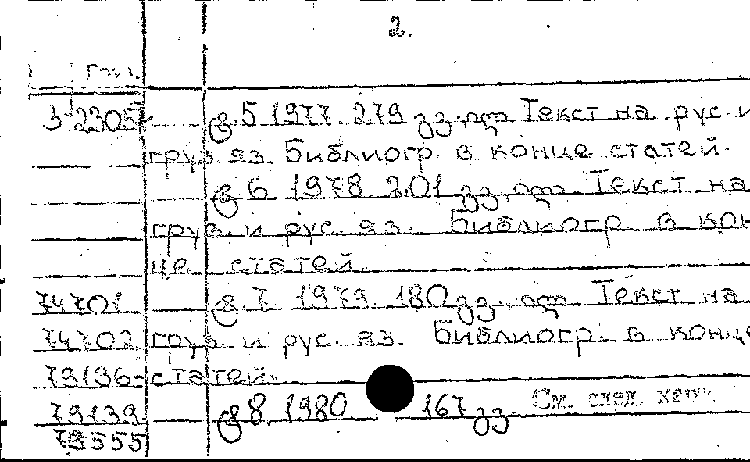 2.
3-2305 გ. 5 1977. 279 გვ. ил Текст на рус. и
груз яз. Библиогр. в конце статей.
გ 6 1978 201 გვ. ил. Текст на
груз. и рус. яз. Библиогр. в кон-
це статей.
74701 გ. 7. 1979. 180 გვ. ил. Текст на
74702 груз и рус. яз. Библиогр. в конце
79136 статей.
79139 გ 8. 1980 167 გვ. См. след. карт.
79555